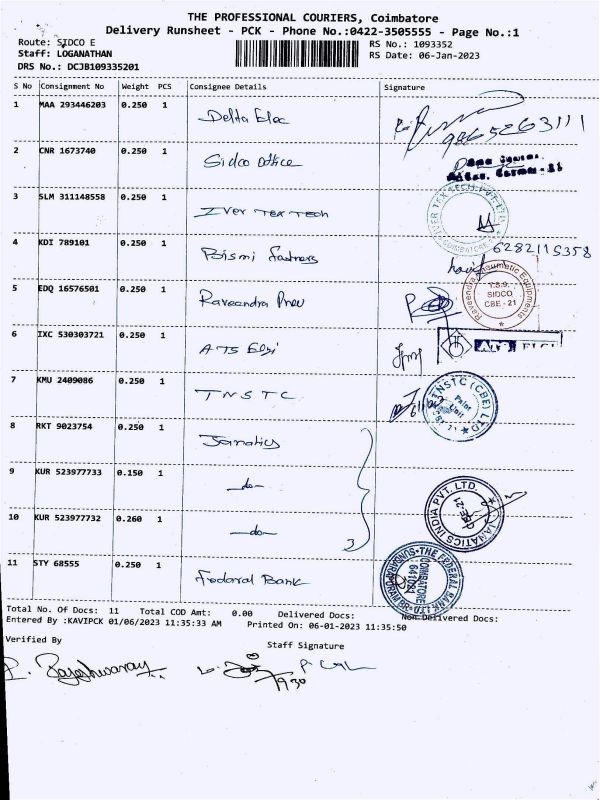 THE PROFESSIONAL COURIERS, Coimbatore
Delivery Runsheet - PCK - Phone No.:0422-3505555 - Page No.:1
Route: SIDCO E
RS No.: 1093352
Staff: LOGANATHAN
RS Date: 06-Jan-2023
DRS No.: DCJB109335201
S No Consignment No Weight PCS Consignee Details Signature
1 MAA 293446203 0.250 1 Delta Elec 9865263111
2 CNR 1673740 0.250 1 Sidco Office
3 SLM 311148558 0.250 1 IVer Tex Tech
4 KDI 789101 0.250 1 Bismi Fastners 6282115358
5 EDQ 16576501 0.250 1 Raveendra Pneu Raveendra Pneumatic Equipments SIDCO CBE - 21
6 IXC 530303721 0.250 1 ATS Elgi ATS ELGI
7 KMU 2409086 0.250 1 TNSTC TNSTC (CBE) LTD
8 RKT 9023754 0.250 1 Janatics
9 KUR 523977733 0.150 1 -do-
10 KUR 523977732 0.260 1 -do- JANATICS INDIA PVT. LTD. CBE-21
11 STY 68555 0.250 1 Federal Bank THE FEDERAL BANK LTD COIMBATORE 641021
Total No. Of Docs: 11 Total COD Amt: 0.00 Delivered Docs: Non Delivered Docs:
Entered By :KAVIPCK 01/06/2023 11:35:33 AM Printed On: 06-01-2023 11:35:50
Verified By Staff Signature